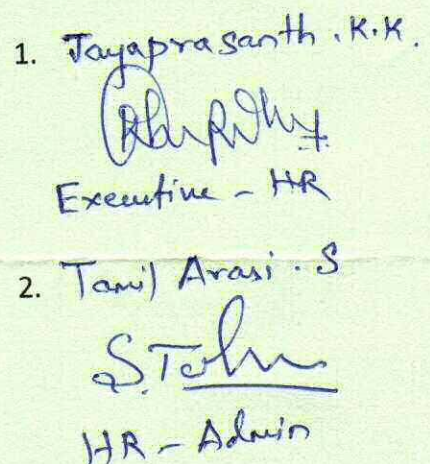 1. Jayaprasanth . K.K.
Executive - HR
2. Tamil Arasi . S
HR - Admin